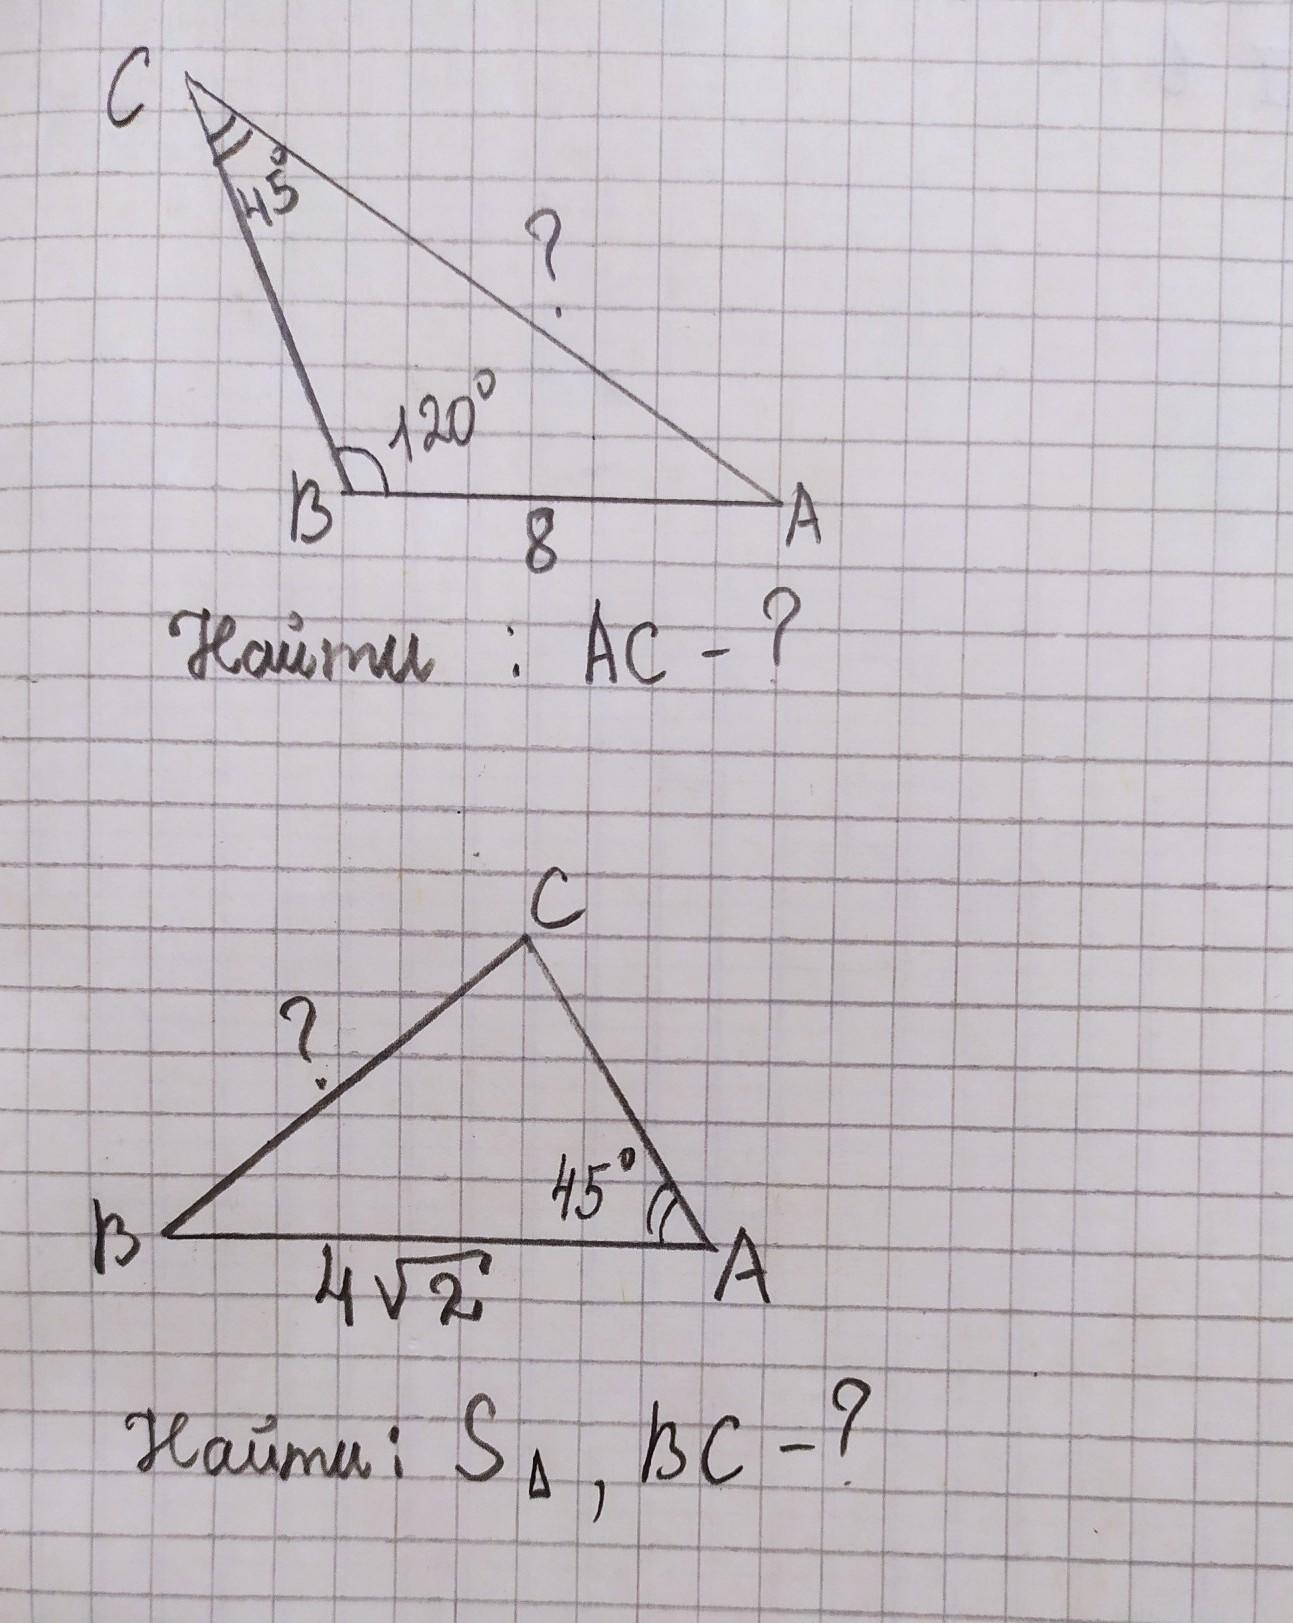 C
45°
?
120°
B
8
A
Найти : AC - ?
C
?
45°
B
4√2
A
Найти: S△, BC - ?